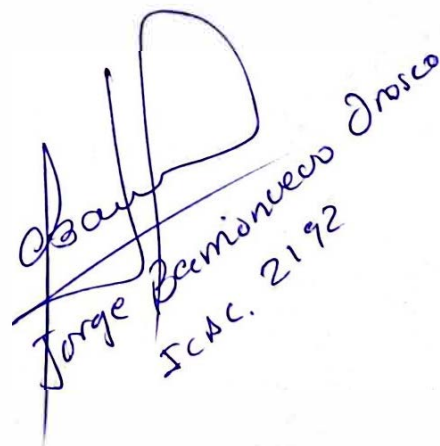 Jorge Barrionuevo Orosco
ICAC. 2192